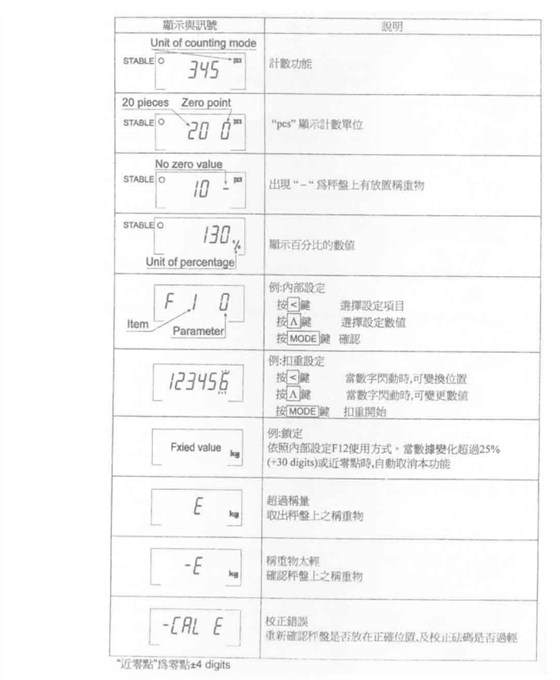 顯示與訊號 說明
Unit of counting mode
STABLE 345 pcs
計數功能
20 pieces Zero point
STABLE 20 0 pcs
“pcs” 顯示計數單位
No zero value
STABLE 10 - pcs
出現 “ – “ 爲秤盤上有放置稱重物
STABLE 130 %
Unit of percentage
顯示百分比的數值
F 1 0
Item Parameter
例:內部設定
按<鍵 選擇設定項目
按Λ鍵 選擇設定數值
按MODE鍵 確認
123456
例:扣重設定
按<鍵 當數字閃動時,可變換位置
按Λ鍵 當數字閃動時,可變更數值
按MODE鍵 扣重開始
Fxied value kg
例:鎖定
依照內部設定F12使用方式。當數據變化超過25%
(+30 digits)或近零點時,自動取消本功能
E kg
超過稱量
取出秤盤上之稱重物
-E kg
稱重物太輕
確認秤盤上之稱重物
-CAL E
校正錯誤
重新確認秤盤是否放在正確位置,及校正砝碼是否過輕
“近零點”爲零點±4 digits